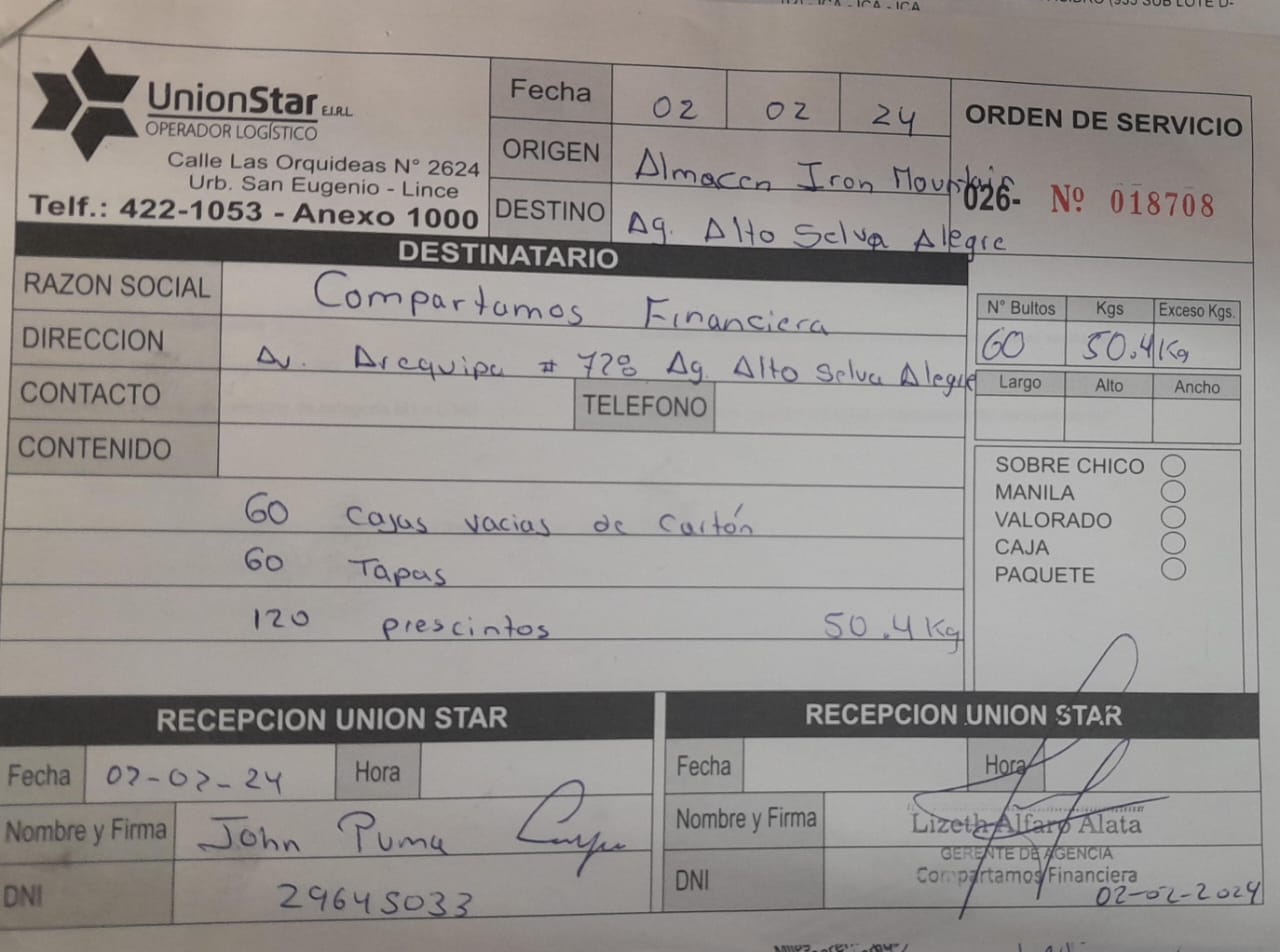 ICA - ICA
UnionStar E.I.R.L
OPERADOR LOGÍSTICO
Calle Las Orquideas N° 2624
Urb. San Eugenio - Lince
Telf.: 422-1053 - Anexo 1000
Fecha 02 02 24
ORIGEN Almacen Iron Mountain
DESTINO Ag. Alto Selva Alegre
ORDEN DE SERVICIO
026- Nº 018708
DESTINATARIO
RAZON SOCIAL Compartamos Financiera
DIRECCION Av. Arequipa # 728 Ag. Alto Selva Alegre
CONTACTO TELEFONO
CONTENIDO
60 Cajas vacias de cartón
60 Tapas
120 prescintos 50.4 Kg
N° Bultos Kgs Exceso Kgs.
60 50.4 Kg
Largo Alto Ancho
SOBRE CHICO
MANILA
VALORADO
CAJA
PAQUETE
RECEPCION UNION STAR
Fecha 02-02-24 Hora
Nombre y Firma John Puma
DNI 29645033
RECEPCION UNION STAR
Fecha Hora
Nombre y Firma Lizeth Alfaro Alata
GERENTE DE AGENCIA
DNI Compartamos Financiera
02-02-2024